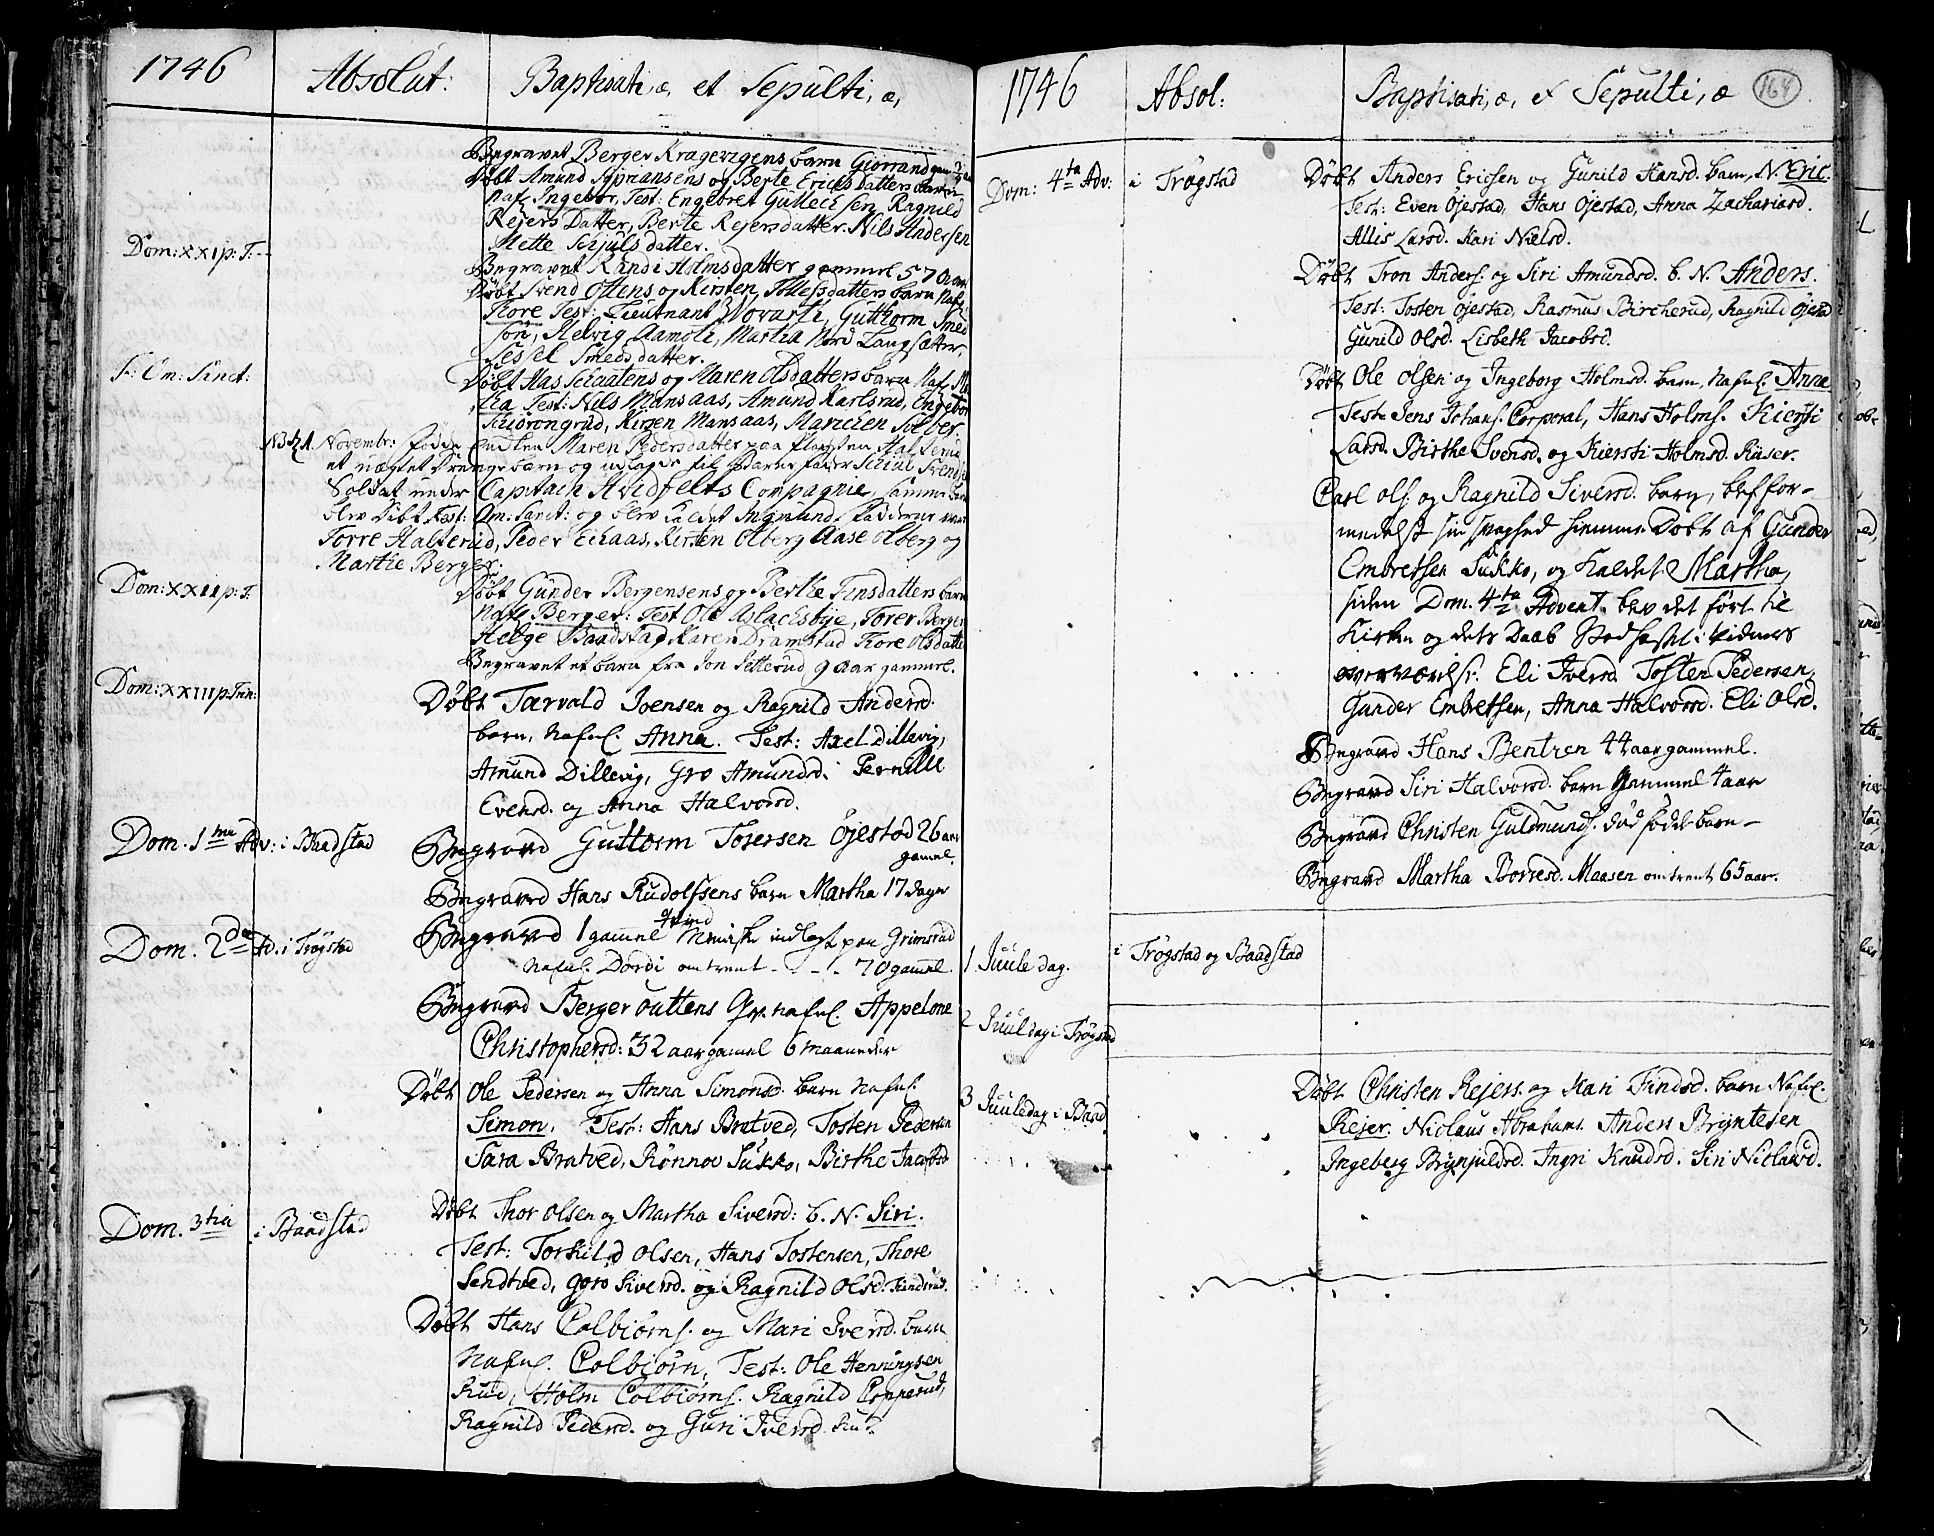 1746
Absolut:
Baptisati, æ, et Sepulti, æ,
Begravet Berger Kragevigens barn
Døbt Amund og Berte Erichs Datters barn
Naf. Ingebor, Test: Engebret Gullecksen, Ragnild
Rejers Datter, Berte Rejersdatter. Nils Andersen
Mette datter.
Dom: XXI p: T:
Begravet Randi Holmsdatter gammel 57 aar
Døbt Svend Ottens og Kirsten Tollefsdatters barn Naf.
Tore Test: Lieutnant Guttorm Smed
sön, Helvig Aamoet, Martha Nord Langsætter,
Sessel Smedsdatter.
F: Om: Sanct:
Døbt og Maren Olsdatters barn Naf. Ma
tha Test: Nils Mansaas, Amund Karlsrud, Engebor
Kirsen Mansaas, Marichen Solber
Novembr: födde Maren Pedersdatter paa
et uægte Drengebarn og udlagde til Barnefader Svends
Soldat under Capitain Hvidfelts Compagnie, samme barn
blev Døbt Fest: Om: Sanct: og blev kaldet Ingmund, Fadderne var
Torre Halserud, Peder Kirsten Olberg Aase Olberg og
Marthe Berger.
Dom: XXII p: T.
Døbt Gunder Bergensens og Berthe Finsdatters barn
Nafl. Berger: Test Ole Aslacksbye, Torer Berger
Helge Baadstad, Karen Dramstad Tore Olsdatte
Begravet et barn fra Jon Setterud 9 aar gammel.
Dom: XXIII p Trin:
Døbt Tarvald Joensen og Ragnild Andersd.
barn, Nafnl. Anna. Test: Axel Dillevig,
Amund Dillevig, Gro Amundsd. Pernille
Evensd. og Anna Halvorsd.
Dom. 1ma Adv: i Baadstad
Begraved Guttorm Torersen Øjestad 26 aar
gamel.
Begraved Hans Rudolfsens barn Martha 17 dage
Dom. 2da Ad. i Trøgstad
Begraved 1 gamel Qvind Meniske indlagt paa Grimsrud
Nafnl. Dordi omtrent - - - 70 gamel.
Begraved Berger Outtens Qv. Nafnl. Appelone
Christophersd: 32 aar gamel 6 maaneder
Døbt Ole Pedersen og Anna Simonsd. barn Nafnl.
Simon. Test: Hans Bratved, Tosten Pedersen
Sara Bratved, Rønnov Sukko, Birthe Jacobsd
Dom. 3tia i Baadstad
Døbt Thor Olsen og Martha Siversd: b. N. Siri.
Test: Torkild Olsen, Hans Tostensen, Thore
Sendtved, Goro Siversd. og Ragnild Olsd.
Døbt Hans Colbiørns. og Mari Iversd. barn
Nafnl. Colbiørn, Test: Ole Henningsen
Rud, Holm Colbiørns. Ragnild Copperud,
Ragnild Pedersd. og Guri Iversd. Rud.
1746
Absol:
Baptisati, æ, et Sepulti, æ
164
Dom: 4ta Adv: i Trøgstad
Døbt Anders Ericsen og Gunild Hansd. barn, N. Eric.
Test: Even Øjestad, Hans Øjestad, Anna Zachariasd.
Allis Larsd. Kari Nielsd.
Døbt Tron Anders. og Siri Amundsd. b. N. Anders.
Test: Tosten Øjestad, Rasmus Bircherud, Ragnild Øjestad
Gunild Olsd. Lisbeth Jacobsd.
Døbt Ole Olsen og Ingeborg Holmsd. barn, Nafnl. Anne
Test: Jens Johans. Corporal, Hans Holms. Kiersti
Larsd. Birthe Svensd. og Kiersti Holmsd. Raser.
Carl Ols. og Ragnild Siversd. barn, blef for-
medelst sin svaghed hiemme Døbt af Gunder
Embretsen Sukko, og kaldet Martha,
siden Dom. 4ta Advent. blev det ført til
Kirken og dets Daab Stadfæstet i vidners
overværelse. Eli Iversd Tosten Pedersen,
Gunder Embretsen, Anna Halvorsd. Eli Olsd.
Begraved Hans Bentzen 44 aar gammel.
Begraved Siri Halvorsd. barn gammel 4 aar
Begraved Christen Guldmunds. død fødde barn -
Begraved Martha Borresd. Maasen omtrent 65 aar.
1 Juule dag. i Trøgstad og Baadstad
2 Juul dag i Trøgstad
3 Juuledag i Baad
Døbt Christen Rejers. og Kari Findsd. barn Nafnl.
Rejer. Nicolaus Abrahams. Anders Bryntesen
Ingeborg Brynjulsd. Ingri Knudsd. Siri Niclausd.